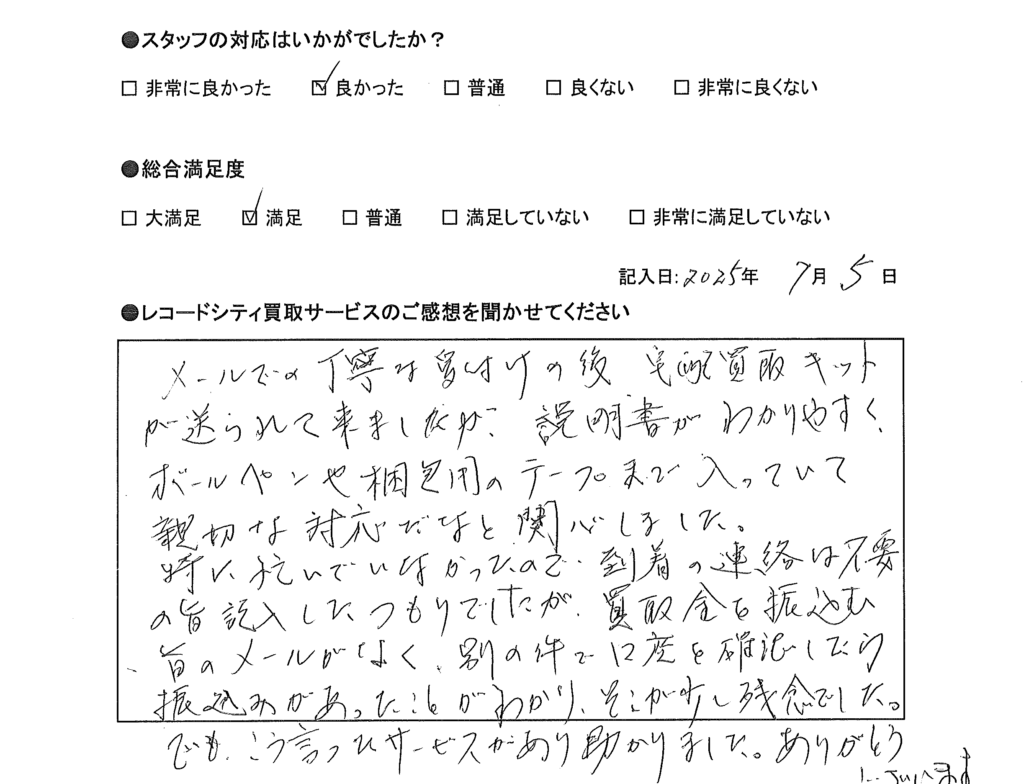 ●スタッフの対応はいかがでしたか？
□ 非常に良かった ☑ 良かった □ 普通 □ 良くない □ 非常に良くない
●総合満足度
□ 大満足 ☑ 満足 □ 普通 □ 満足していない □ 非常に満足していない
記入日:2025年 7月 5日
●レコードシティ買取サービスのご感想を聞かせてください
メールでの丁寧な受付けの後 宅配買取キット
が送られて来ましたが、説明書がわかりやすく、
ボールペンや梱包用のテープまで入っていて
親切な対応だなと関心しました。
特に急いでいなかったので、到着の連絡は不要
の旨記入したつもりでしたが、買取金を振込む
旨のメールがなく、別の件で口座を確認したら
振込みがあったことがわかり、そこが少し残念でした。
でも、こう言ったサービスがあり助かりました。ありがとう
ございます